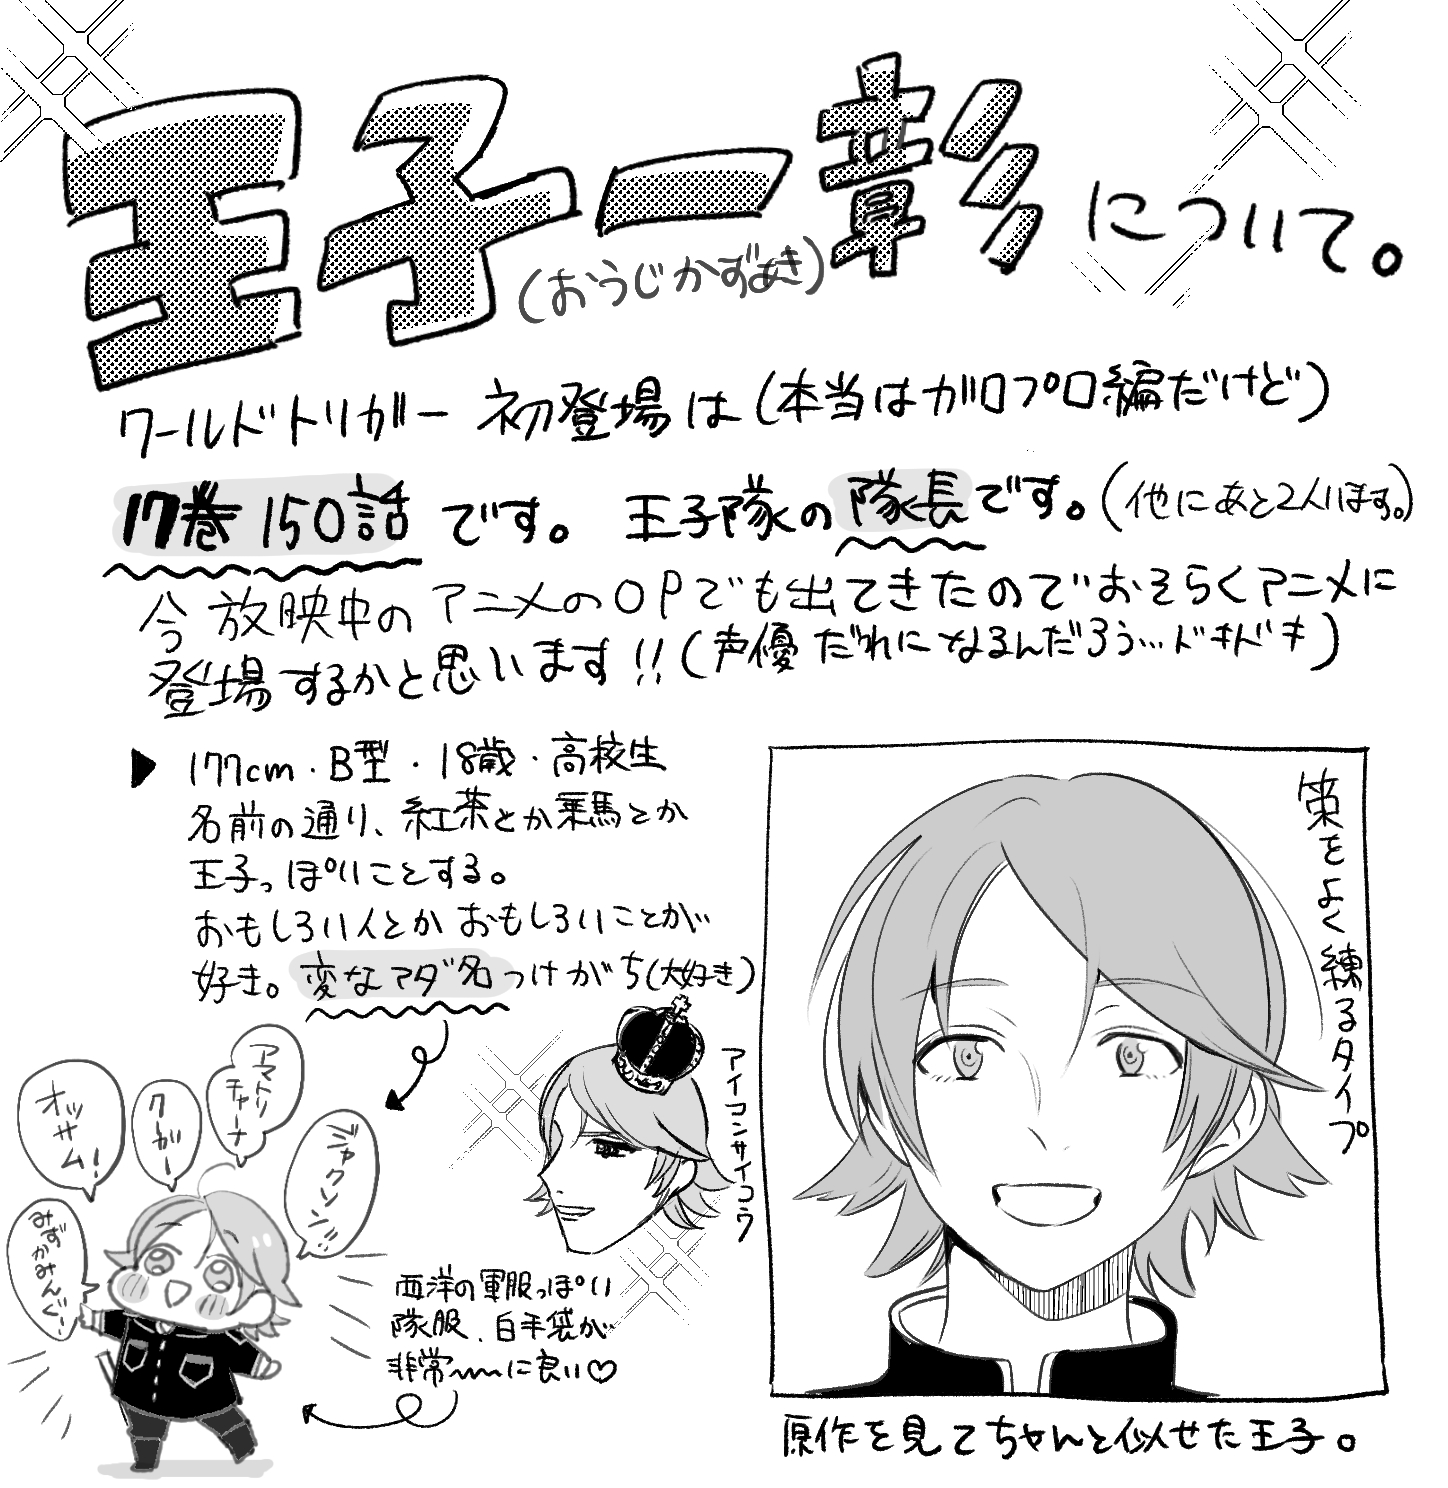 王子一彰について。
(おうじかずあき)
ワールドトリガー 初登場は(本当はガロプロ編だけど)
17巻150話です。王子隊の隊長です。(他にあと2人います。)
今放映中のアニメのOPでも出てきたのでおそらくアニメに
登場するかと思います!!(声優だれになるんだろう…ドキドキ)
▶177cm・B型・18歳・高校生
名前の通り、紅茶とか乗馬とか
王子っぽいことする。
おもしろい人とかおもしろいことが
好き。変なアダ名つけがち(大好き)
策をよく練るタイプ
アイコンサイコウ
オッサム!
クーガー
アマトリ
チャーナ
ジャクソン!!
みずかみんぐー!
西洋の軍服っぽい
隊服、白手袋が
非常〜〜に良い♡
原作を見てちゃんと似せた王子。